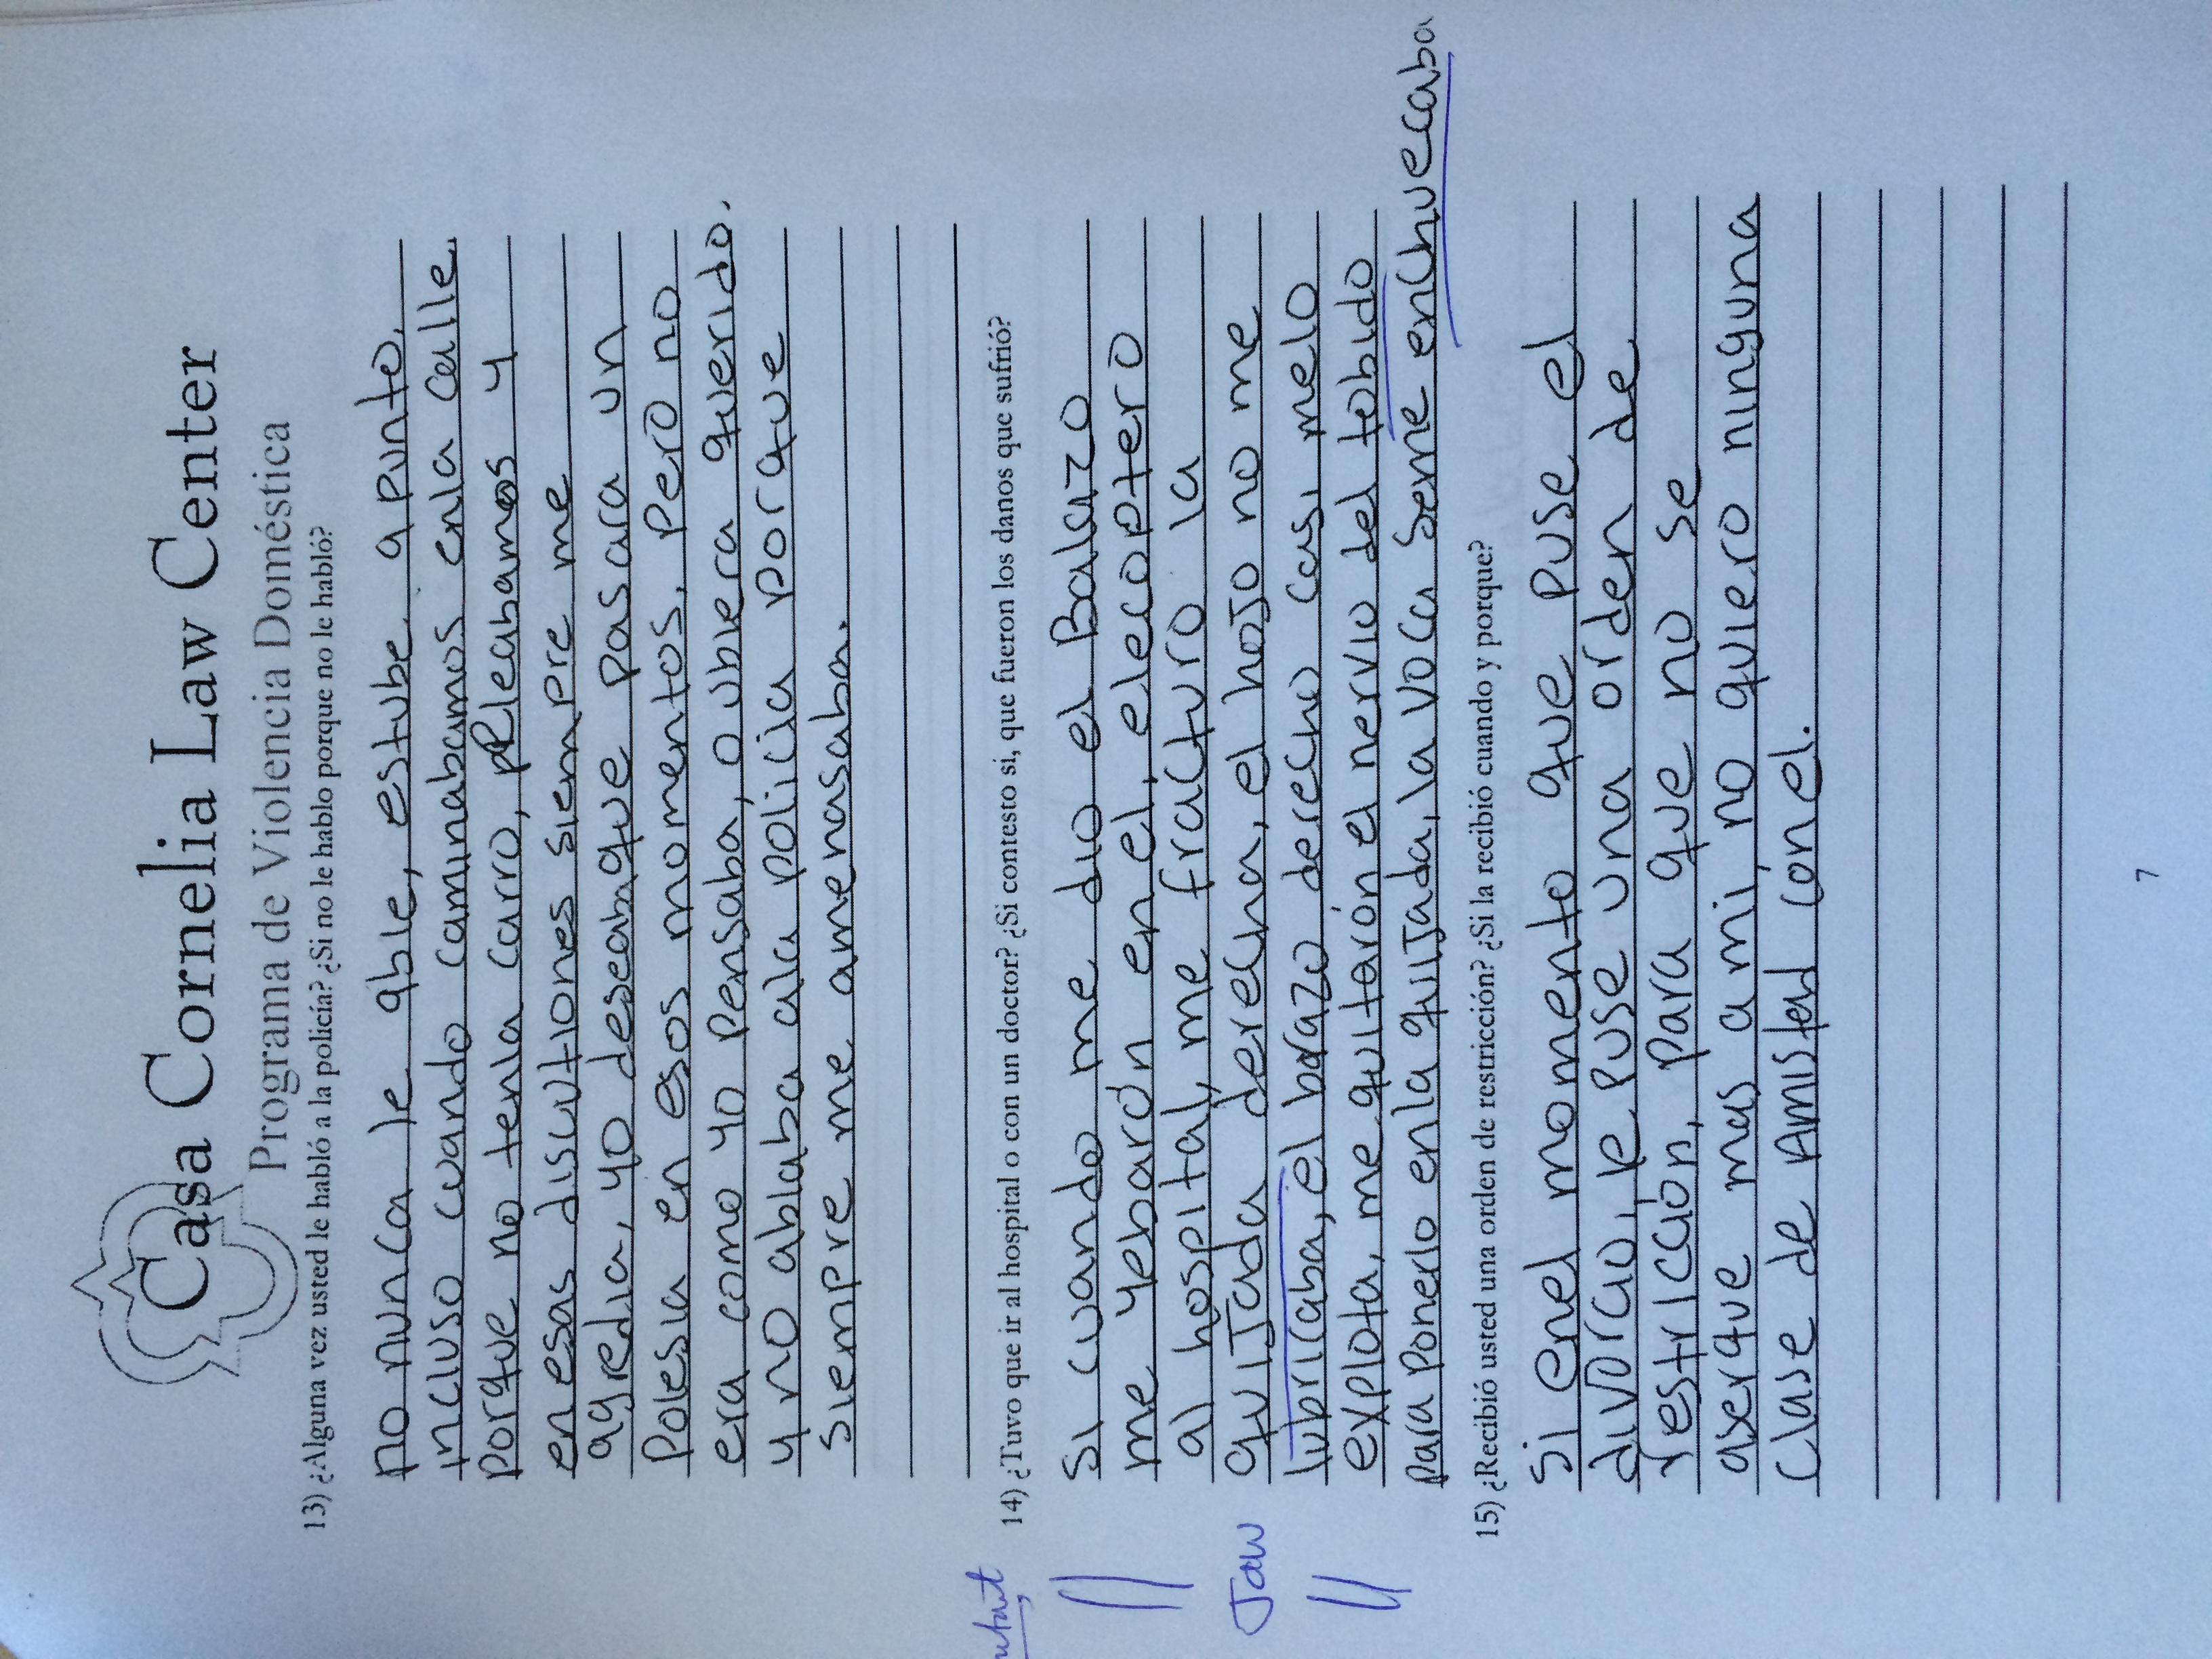 Casa Cornelia Law Center
Programa de Violencia Doméstica
13) ¿Alguna vez usted le habló a la policía? ¿Si no le hablo porque no le habló?
no nunca le able, estube apunto,
incluso cuando caminabamos enla calle,
Porque no tenia carro, peleabamos y
en esas discutiones siempre me
agredia, yo deseabaque pasara un
Polesia en esos momentos, Pero no
era como yo Pensaba, o ubiera querido.
y no ablaba ala policia porque
siempre me amenasaba.
14) ¿Tuvo que ir al hospital o con un doctor? ¿Si contesto si, que fueron los danos que sufrió?
Si cuando me dio el Balazo
me yebarón en el, elecoptero
al hospital, me fracturo la
Jaw
quiJada derecha, el hoJo no me
lubricaba, el brazo derecho casi melo
explota, me quitarón el nervio del tobido
para Ponerlo enla quiJada, la voca Seme enchuecaba
15) ¿Recibió usted una orden de restricción? ¿Si la recibió cuando y porque?
Si enel momento que puse el
divorcio, le puse una orden de
restricción, Para que no se
aserque mas a mi, no quiero ninguna
Clase de Amisted cónel.
7